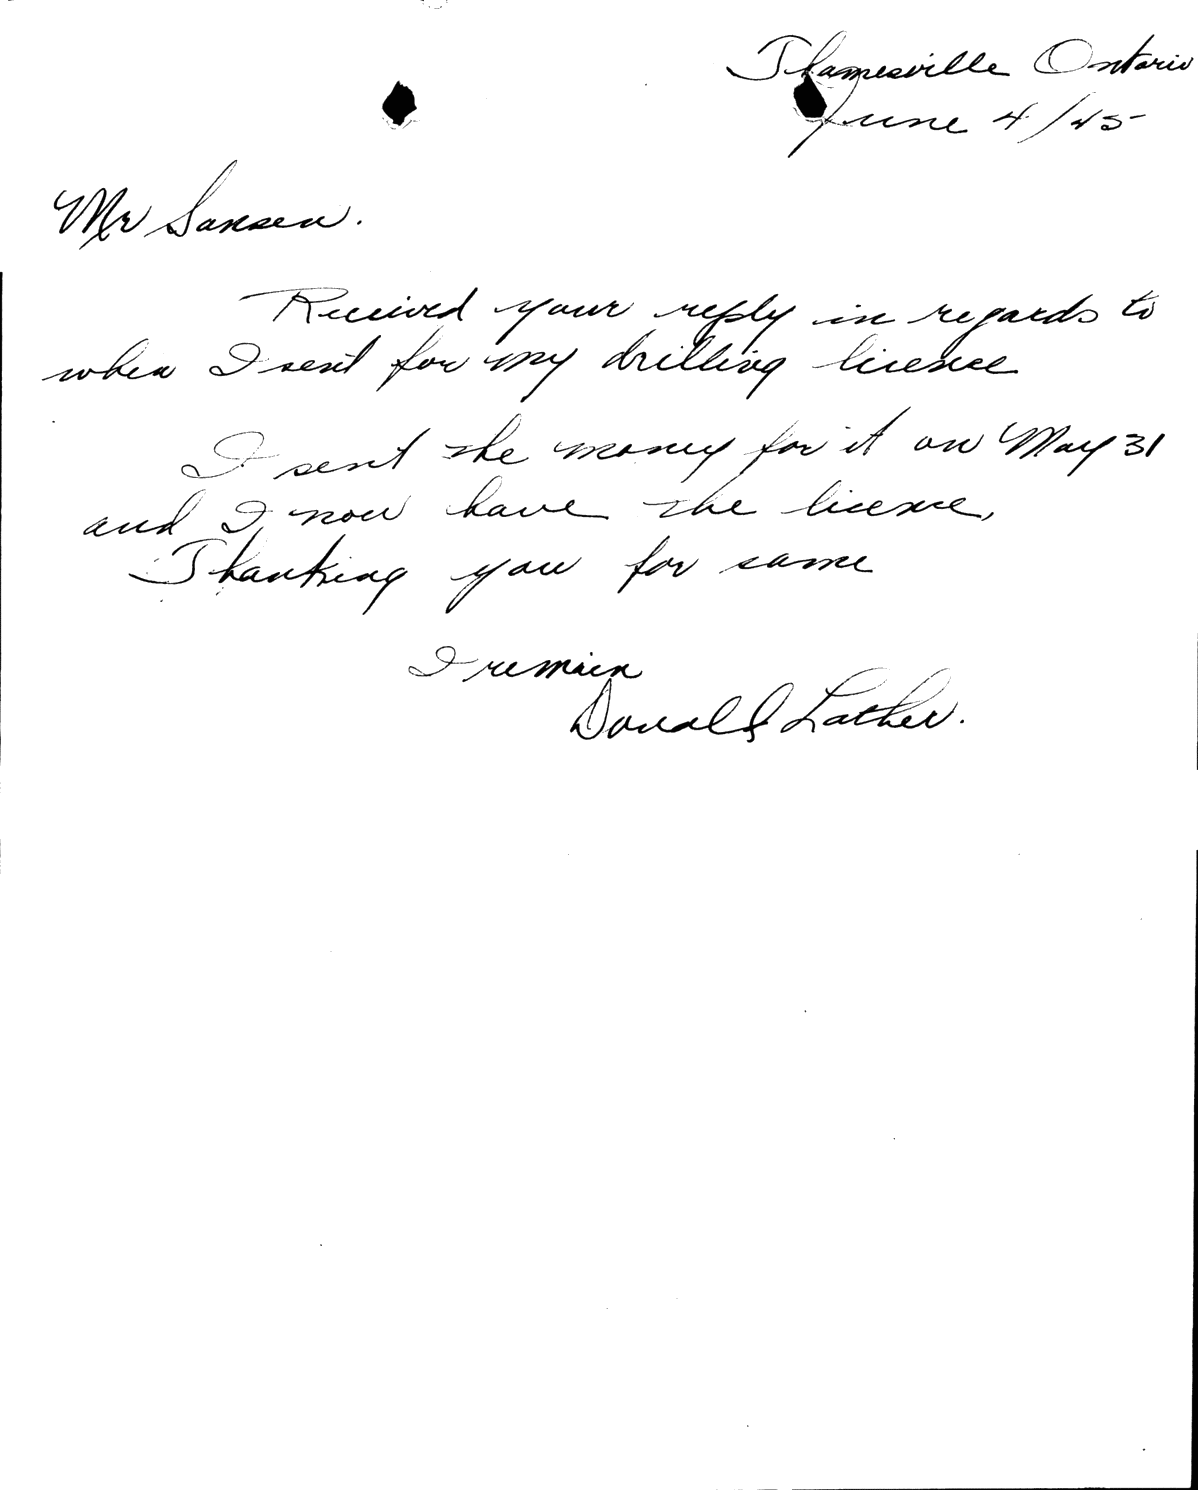 Thamesville Ontario
June 4/45
Mr Sansen.
Received your reply in regards to
when I sent for my drilling licence
I sent the money for it on May 31
and I now have the licence,
Thanking you for same
I remain
Donald Lather.